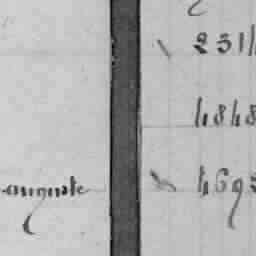 231
4848
auguste 469